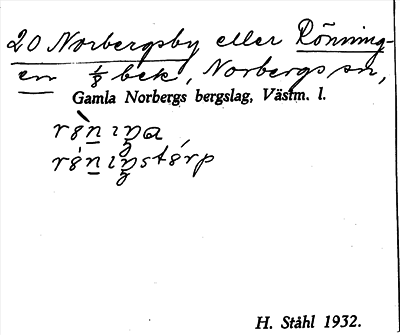 20 Norbergsby eller Rönning-
en 1/8 bek, Norbergs sn,
Gamla Norbergs bergslag, Västm. l.
H. Ståhl 1932.